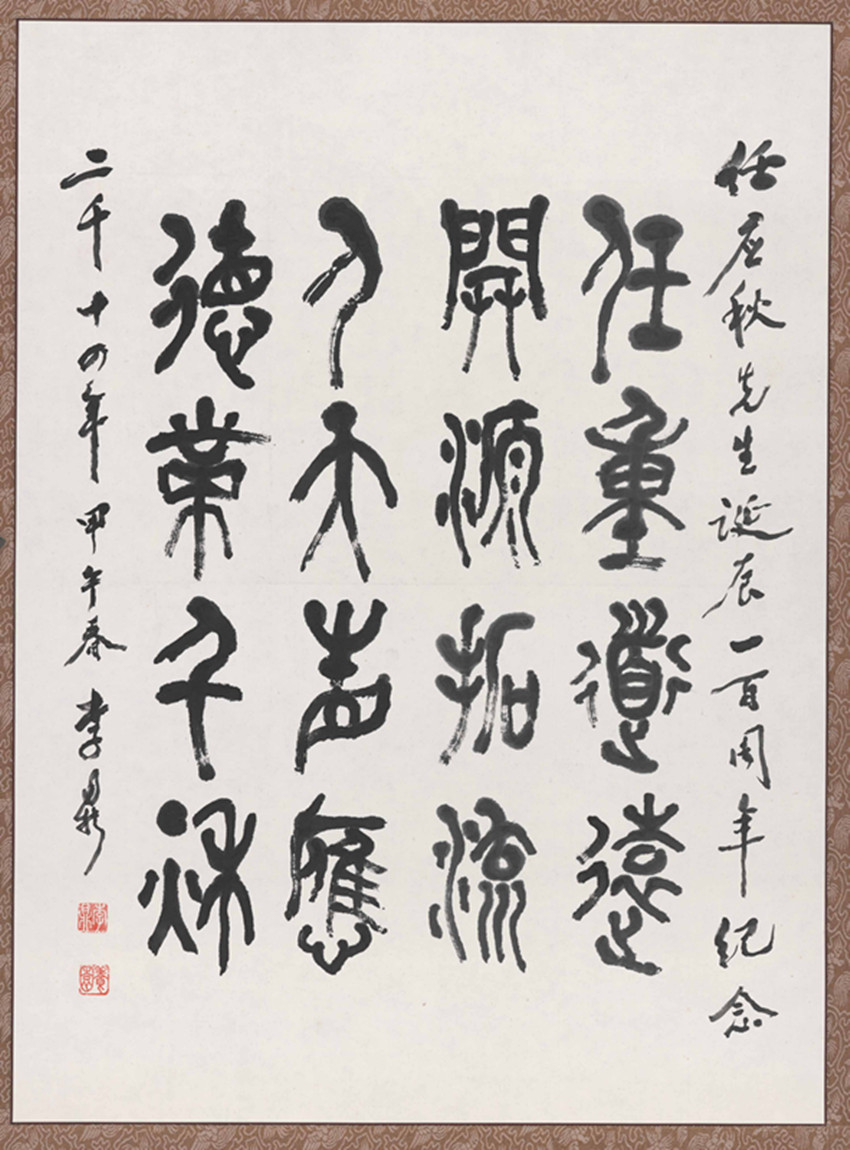 任应秋先生诞辰一百周年纪念
任重道遠
開源拓流
人天應
德業千秋
二千十四年 甲午春 李鼎
李鼎